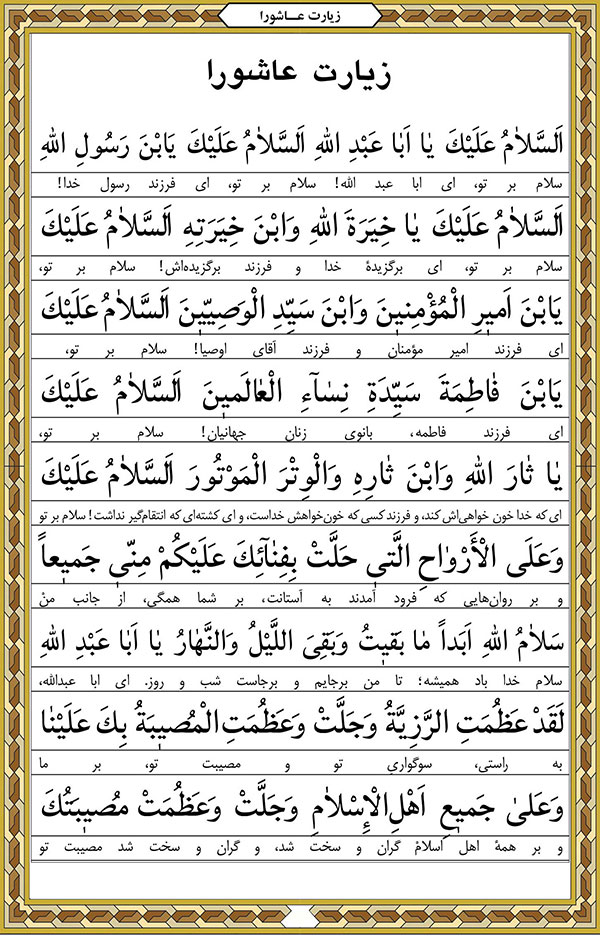 زیارت عـــاشورا
زیارت عاشورا
اَلسَّلاٰمُ عَلَيْكَ يٰا اَبٰا عَبْدِ اللهِ اَلسَّلاٰمُ عَلَيْكَ يَابْنَ رَسُولِ اللهِ
سلام بر تو، ای ابا عبد الله! سلام بر تو، ای فرزند رسول خدا!
اَلسَّلاٰمُ عَلَيْكَ يٰا خِيَرَةَ اللهِ وَابْنَ خِيَرَتِهِ اَلسَّلاٰمُ عَلَيْكَ
سلام بر تو، ای برگزیدهٔ خدا و فرزند برگزیده‌اش! سلام بر تو،
يَابْنَ اَميرِ الْمُؤْمِنينَ وَابْنَ سَيِّدِ الْوَصِيّينَ اَلسَّلاٰمُ عَلَيْكَ
ای فرزند امیر مؤمنان و فرزند آقای اوصیا! سلام بر تو،
يَابْنَ فٰاطِمَةَ سَيِّدَةِ نِسٰآءِ الْعٰالَمينَ اَلسَّلاٰمُ عَلَيْكَ
ای فرزند فاطمه، بانوی زنان جهانیان! سلام بر تو،
يٰا ثٰارَ اللهِ وَابْنَ ثٰارِهِ وَالْوِتْرَ الْمَوْتُورَ اَلسَّلاٰمُ عَلَيْكَ
ای که خدا خون خواهی‌اش کند، و فرزند کسی که خون‌خواهش خداست، و ای کشته‌ای که انتقام‌گیر نداشت! سلام بر تو
وَعَلَى الْأَرْوٰاحِ الَّتي حَلَّتْ بِفِنٰآئِكَ عَلَيْكُمْ مِنّي جَميعاً
و بر روان‌هایی که فرود آمدند به آستانت، بر شما همگی، از جانب من
سَلاٰمُ اللهِ اَبَداً مٰا بَقيتُ وَبَقِىَ اللَّيْلُ وَالنَّهٰارُ يٰا اَبٰا عَبْدِ اللهِ
سلام خدا باد همیشه؛ تا من برجایم و برجاست شب و روز. ای ابا عبدالله،
لَقَدْ عَظُمَتِ الرَّزِيَّةُ وَجَلَّتْ وَعَظُمَتِ الْمُصيبَةُ بِكَ عَلَيْنٰا
به راستی، سوگواریِ تو و مصیبت تو، بر ما
وَعَلىٰ جَميعِ اَهْلِ الْإِسْلاٰمِ وَجَلَّتْ وَعَظُمَتْ مُصيبَتُكَ
و بر همهٔ اهل اسلام گران و سخت شد، و گران و سخت شد مصیبت تو